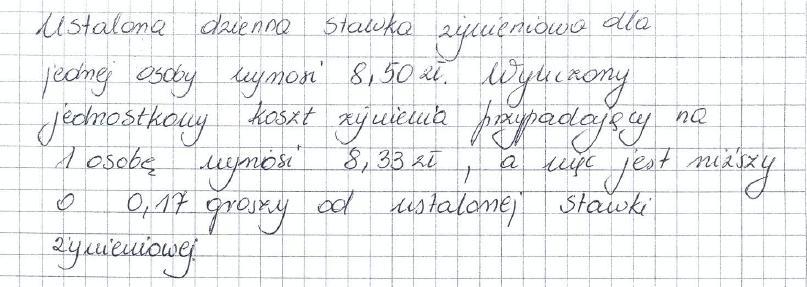 Ustalona dzienna stawka żywieniowa dla
jednej osoby wynosi 8,50 zł. Wyliczony
jednostkowy koszt żywienia przypadający na
1 osobę wynosi 8,33 zł, a więc jest niższy
o 0,17 groszy od ustalonej stawki
żywieniowej